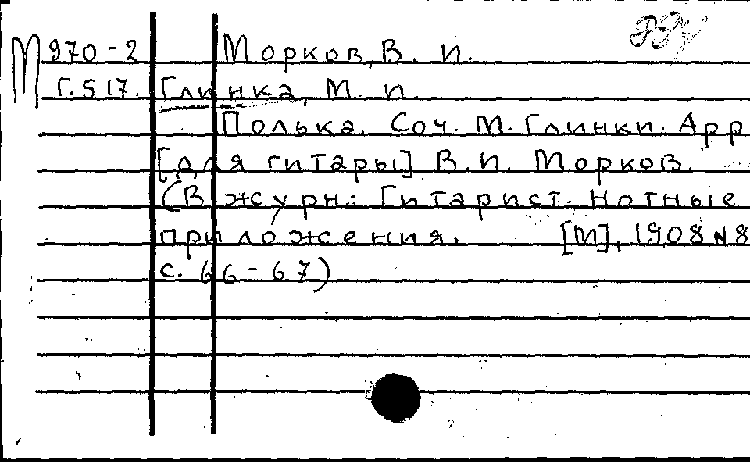 М 970-2 Морков, В. И.
Г.517. Глинка, М. И.
Полька. Соч. М. Глинки. Арр
[для гитары] В. И. Морков.
(В журн.: Гитарист. Нотные
приложения. [М], 1908 № 8
с. 66-67)